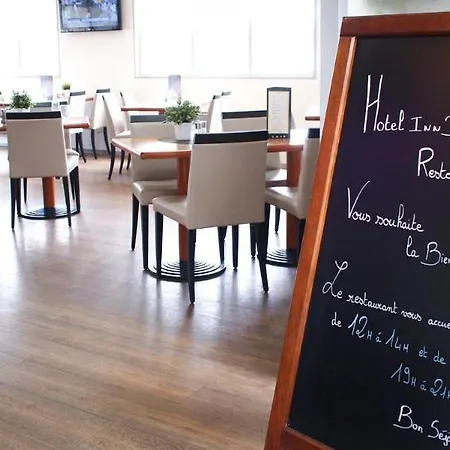 Hotel Inn
Resto
Vous souhaite
la Bien
Le restaurant vous accue
de 12H à 14H et de
19H à 21H
Bon Séj